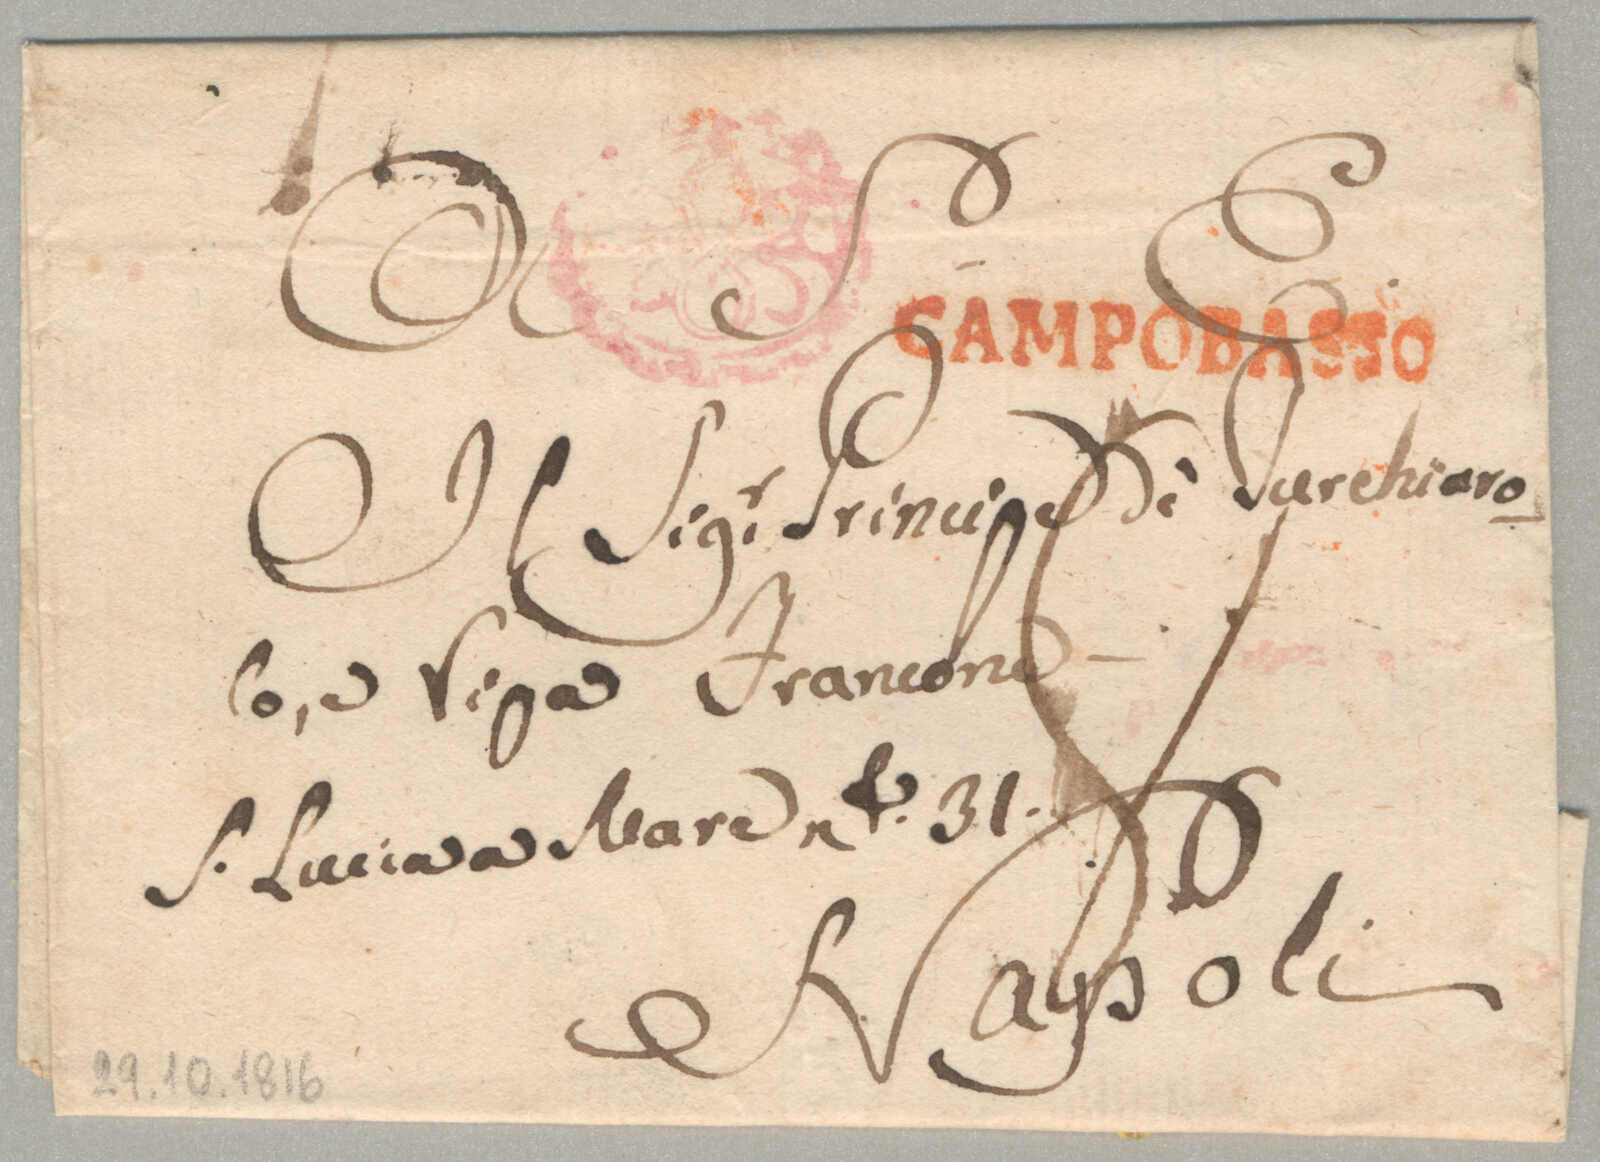 A S. E.
CAMPOBASSO
Il Sigr. Principe di
Vega Francone
S. Lucia a Mare n. 31.
Napoli
29.10.1816